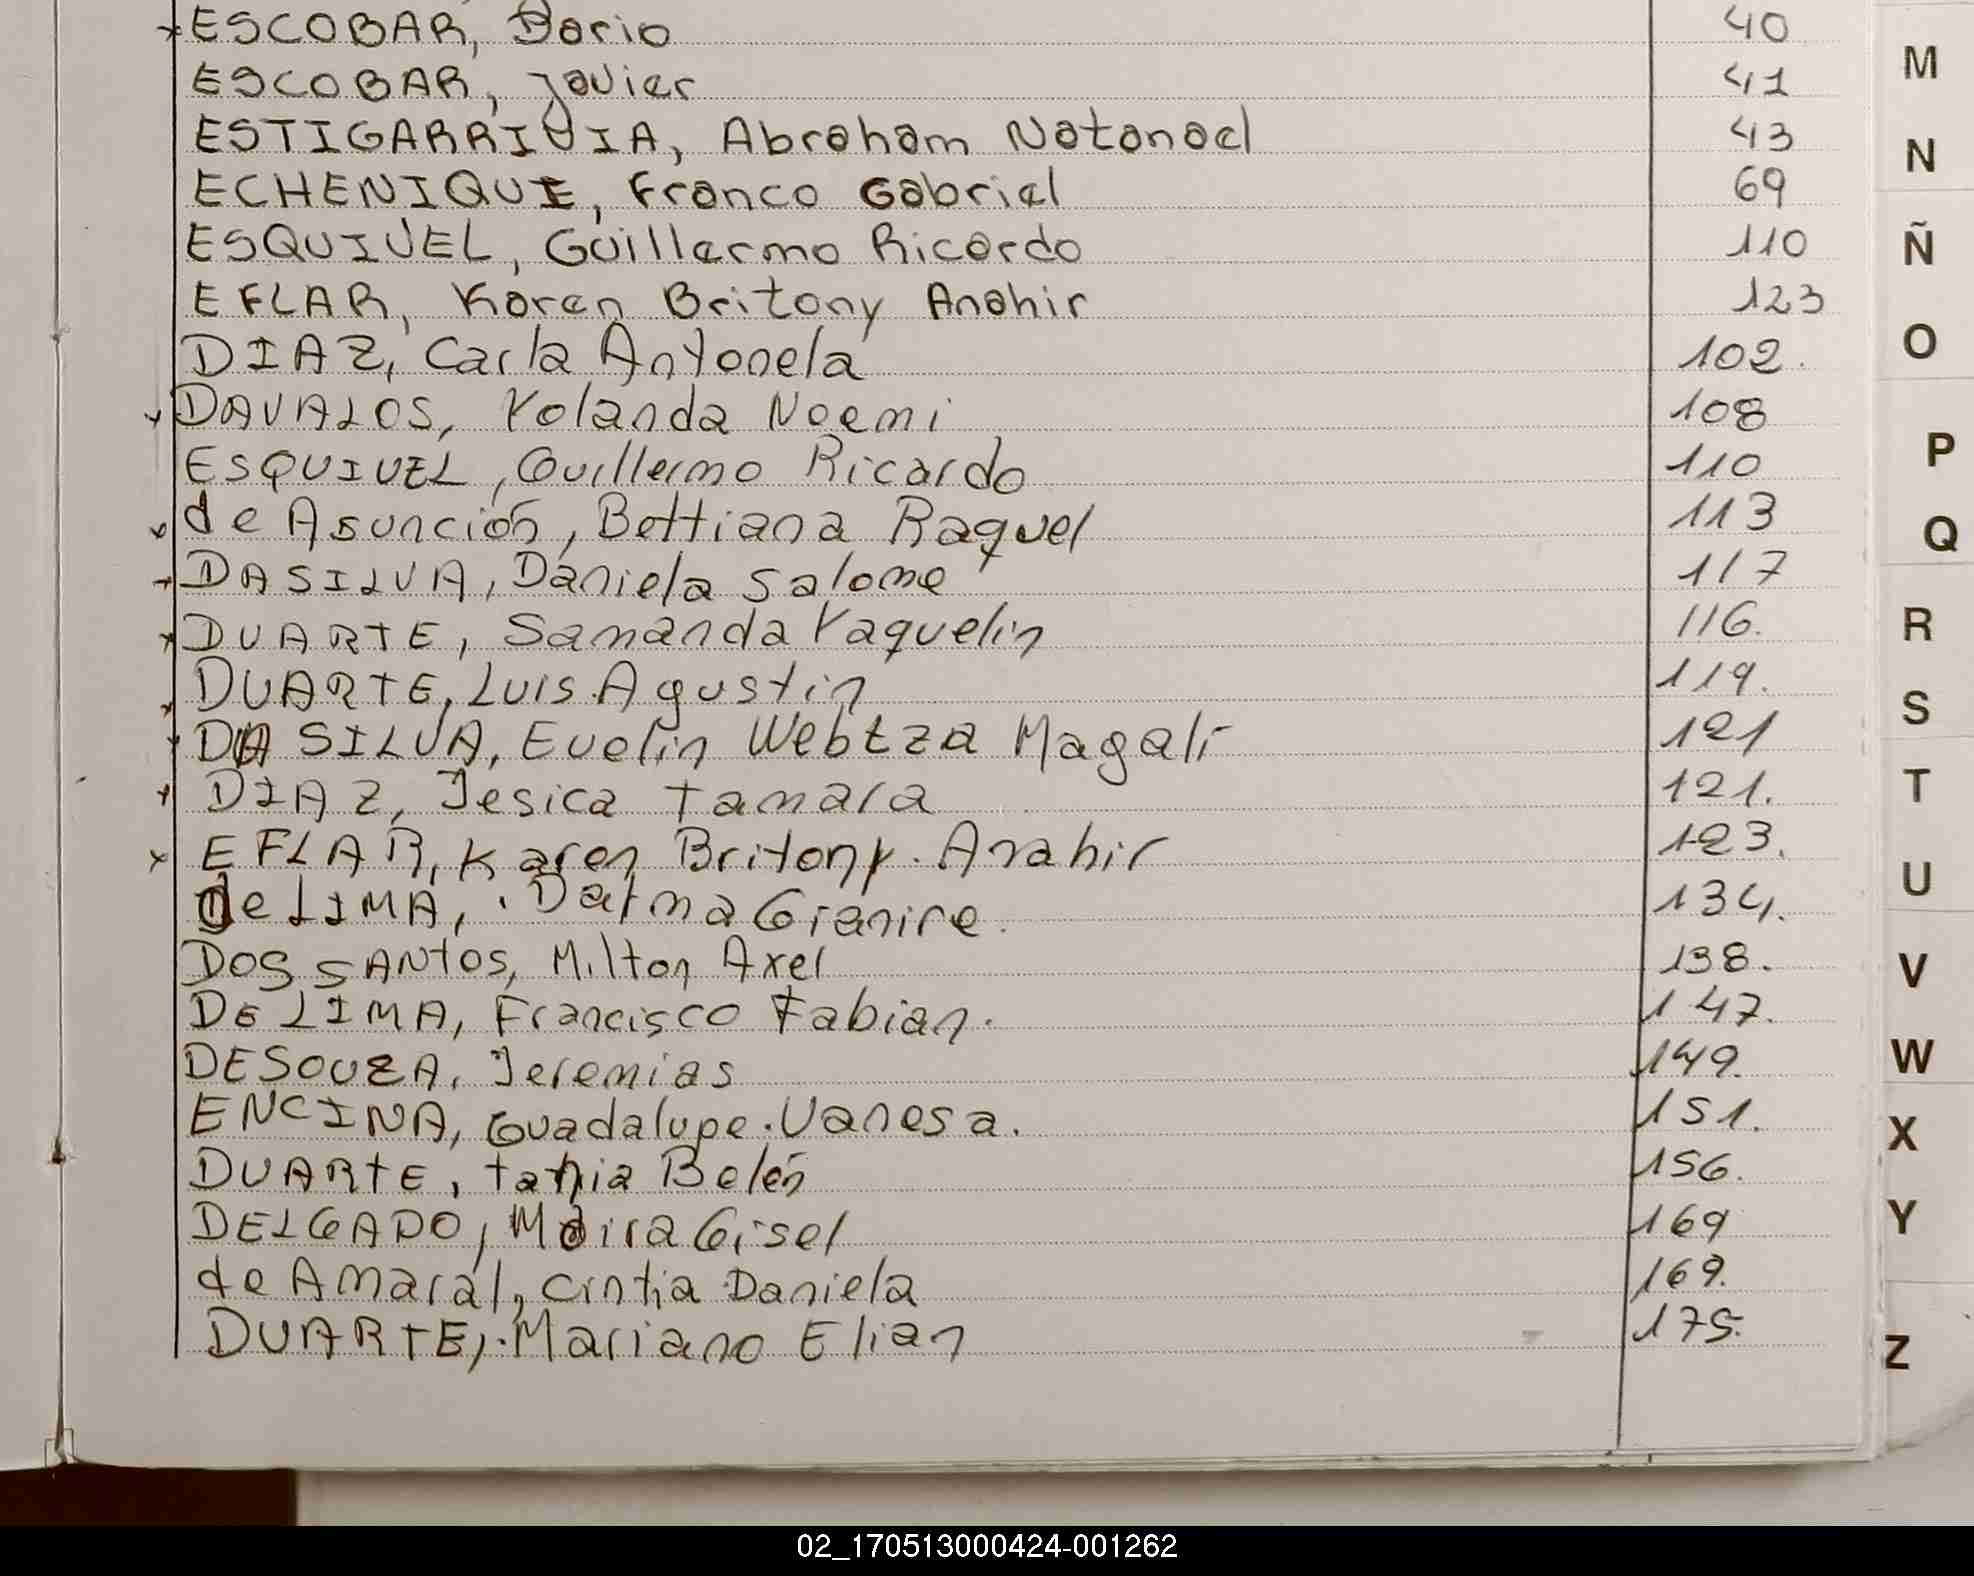 ESCOBAR, Dario 40
ESCOBAR, Javier 41
ESTIGARRIVIA, Abraham Natanael 43
ECHENIQUE, Franco Gabriel 69
ESQUIVEL, Guillermo Ricardo 110
EFLAR, Karen Britany Anahir 123
DIAZ, Carla Antonela 102.
DAVALOS, Yolanda Noemi 108
ESQUIVEL, Guillermo Ricardo 110
de Asunción, Bettiana Raquel 113
DASILVA, Daniela Salome 117
DUARTE, Samanda Yaquelin 116.
DUARTE, Luis Agustin 119.
DA SILVA, Evelin Webtza Magali 121
DIAZ, Jesica Tamara 121.
EFLAR, Karen Britany Anahir 123.
de LIMA, Daima Gianire. 134.
DOS SANTOS, Milton Axel 138.
DE LIMA, Francisco Fabian. 147.
DESOUZA, Jeremias 149.
ENCINA, Guadalupe Vanesa. 151.
DUARTE, Tania Belén 156.
DELGADO, Moira Gisel 169
de Amaral, Cintia Daniela 169.
DUARTE, Mariano Elian 175.
M
N
Ñ
O
P
Q
R
S
T
U
V
W
X
Y
Z
02_170513000424-001262